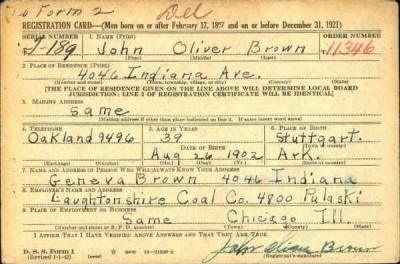 To Form 2
Del
REGISTRATION CARD—(Men born on or after February 17, 1897 and on or before December 31, 1921)
SERIAL NUMBER 1. NAME (Print) ORDER NUMBER
T-189 John Oliver Brown 11346
(First) (Middle) (Last)
2. PLACE OF RESIDENCE (Print)
4046 Indiana Ave.
(Number and street) (Town, township, village, or city) (County) (State)
[THE PLACE OF RESIDENCE GIVEN ON THE LINE ABOVE WILL DETERMINE LOCAL BOARD
JURISDICTION; LINE 2 OF REGISTRATION CERTIFICATE WILL BE IDENTICAL]
3. MAILING ADDRESS
Same
(Mailing address if other than place indicated on line 2. If same insert word same)
4. TELEPHONE 5. AGE IN YEARS 6. PLACE OF BIRTH
Oakland 9496 39 Stuttgart.
DATE OF BIRTH (Town or county)
Aug 26 1902 Ark.
(Exchange) (Number) (Mo.) (Day) (Yr.) (State or country)
7. NAME AND ADDRESS OF PERSON WHO WILL ALWAYS KNOW YOUR ADDRESS
Geneva Brown 4046 Indiana
8. EMPLOYER'S NAME AND ADDRESS
Coal Co. 4800 Pulaski
9. PLACE OF EMPLOYMENT OR BUSINESS
Same Chicago Ill.
(Number and street or R. F. D. number) (Town) (County) (State)
I AFFIRM THAT I HAVE VERIFIED ABOVE ANSWERS AND THAT THEY ARE TRUE.
D. S. S. Form 1
(Revised 1-1-42) (over)
John Oliver Brown